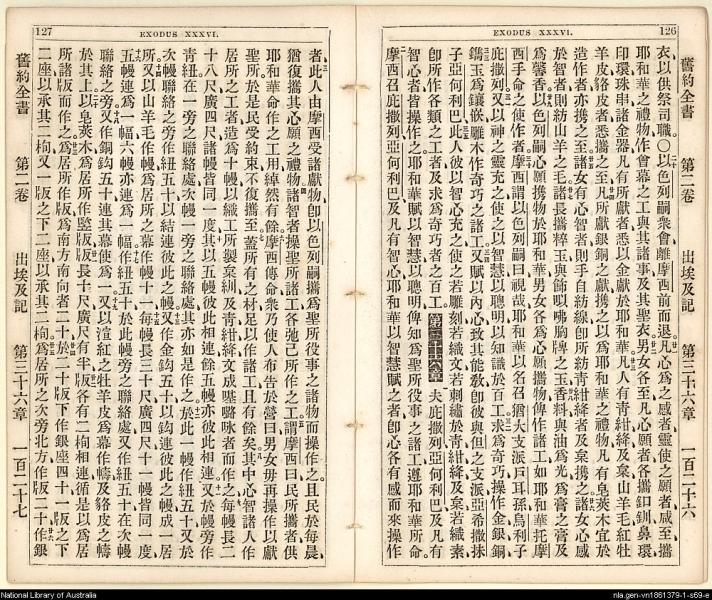 126
EXODUS XXXVI.
舊約全書 第二卷 出埃及記 第三十六章 一百二十六
衣以供祭司職○以色列嗣眾會離摩西前而退凡心爲之感者靈使之願者咸至攜
耶和華之禮物作會幕之工與其諸事及其聖衣男女各至凡心願者各攜釦釧鼻環
印環珠串諸金器凡有所獻者悉以金獻於耶和華凡人有青紺絳及枲山羊毛紅牡
羊皮貉皮者悉攜之至凡所獻銀銅之獻攜之以爲耶和華之禮物凡有皁莢木宜於
造作者亦攜之至諸女有心智者則手自紡線卽所紡青紺絳者及枲攜之諸女心感
於智者則紡山羊之毛諸長攜粹玉與飾以咈胸牌之玉香料與油爲光爲膏之膏及
爲馨香以色列嗣心願攜物於耶和華男女各爲凡心願攜物俾作諸工如耶和華托摩
西手命之使作者摩西謂以色列嗣曰視哉耶和華以名召猶大支派戶耳孫烏利子
庇撒列又以神之靈充之使之以智慧以聰明以知識於百工求爲奇巧操作金銀銅
鐫玉爲鑲嵌雕木作奇巧之諸工又賦以內心致其能敎卽彼與但之支派亞希撒抹
子亞何利巴此人彼以智心充之使之若雕刻若織文若刺繡於青紺絳及枲若織素
卽所作各類之工者及求爲奇巧者之百工第三十六章夫庇撒列亞何利巴及凡有
智心者皆操作之卽耶和華賦以智慧以聰明俾知爲聖所役事之諸工遵耶和華所命
摩西召庇撒列亞何利巴及凡有智心耶和華以智慧賦之者卽心各有感而來操作
127
EXODUS XXXVI.
者此人由摩西受諸獻物卽以色列嗣攜爲聖所役事之諸物而操作之且民於每晨
猶復攜其心願之禮物諸智者操聖所諸工各弛己所作之工謂摩西曰民所攜者供
耶和華命作之工用綽然有餘摩西傳命衆乃使人布告於營曰男女毋再操作以獻
聖所於是民受約束不復攜至蓋所有之材足以作諸工且有餘矣其中心智諸人作
居所之工者造爲十幔以織工所製枲紃及青紺絳文成咏者而作之每幔長二
十八尺廣四尺諸幔皆同一度其以五幔彼此相連餘五幔亦彼此相連又於幔旁作
青紐在一旁之聯絡處次幔一旁之聯絡處亦如是作之於此一幔作紐五十又於
次幔聯絡之旁作紐五十以結連彼此之幔又作金鈎五十以鈎連彼此之幔成一居
所又以山羊毛作幔爲居所之幕作幔十一每幔長三十尺廣四尺十一幔皆同一度
五幔連爲一幅六幔亦連爲一幅作紐五十於此幔旁之聯絡處又作紐五十在次幔
聯絡之旁又作銅鈎五十連其幕使爲一又以渲紅之牡羊皮爲幕作幬及貉皮之幬
於其上以皁莢木爲居所作竪版版長十尺廣尺有半版各有二枸相連循是以爲居
所諸版而作之爲居所作版爲南方南向者二十於二十版下作銀座四十一版之下
二座以承其二枸又一版之下二座以承其二枸爲居所之次旁北方作版二十作銀
舊約全書 第二卷 出埃及記 第三十六章 一百二十七
National Library of Australia
nla.gen-vn1861379-1-s69-e